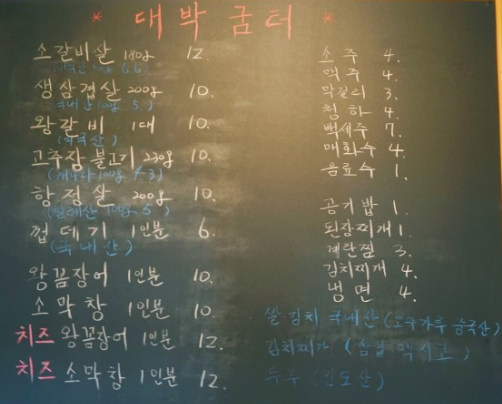 * 대박 굼터 *
소갈비살 180g 12.
생삼겹살 200g 10.
국내산 100g 5.)
왕갈비 1대 10.
고추장불고기 230g 10.
항정살 200g 10.
껍데기 1인분 6.
(국내산)
왕꼼장어 1인분 10.
소막창 1인분 10.
치즈 왕꼼장어 1인분 12.
치즈 소막창 1인분 12.
소주 4.
맥주 4.
막걸리 3.
청하 4.
백세주 7.
매화수 4.
음료수 1.
공기밥 1.
된장찌개 1.
계란찜 3.
김치찌개 4.
냉면 4.
쌀 김치 국내산 (고추가루 중국산)
김치찌개 (삼겹 멕시코)
두부 (인도산)